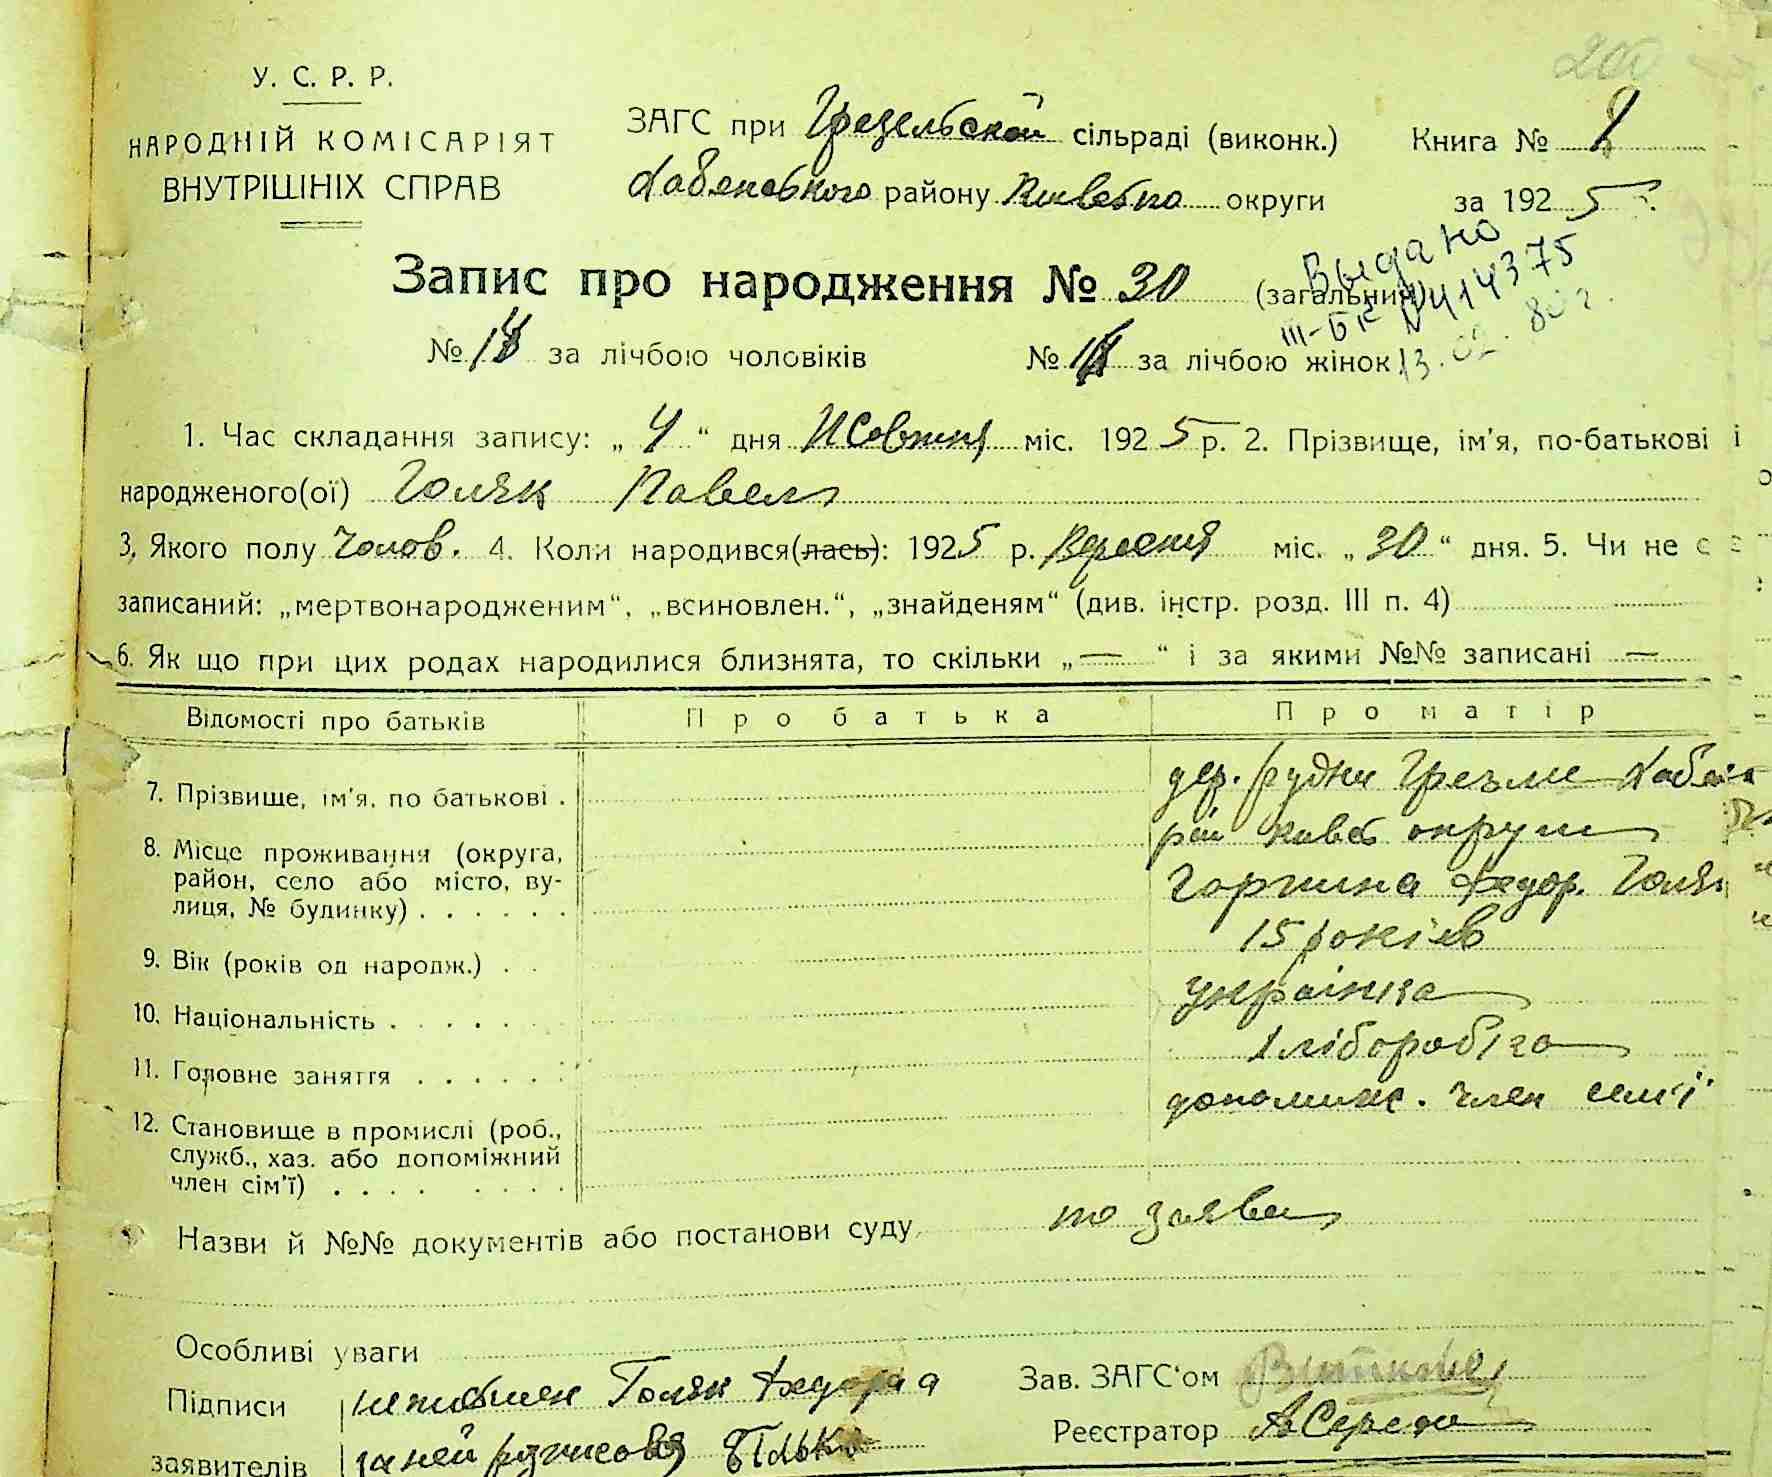 200
У. С. Р. Р.
НАРОДНІЙ КОМІСАРІЯТ
ВНУТРІШНІХ СПРАВ
ЗАГС при Грезельской сільраді (виконк.) Книга №
району округи за 1925
Запис про народження № 30 (загальний)
Выдано
III-БК № 414375
13.02.80г.
№ за лічбою чоловіків № за лічбою жінок
1. Час складання запису: „4“ дня Жовтня міс. 1925 р. 2. Прізвище, ім'я, по-батькові і
народженого(ої) Голяк Павел
3, Якого полу Чолов. 4. Коли народився(лась): 1925 р. Вересня міс. „30“ дня. 5. Чи не є
записаний: „мертвонародженим“, „всиновлен.“, „знайденям“ (див. інстр. розд. III п. 4)
6. Як що при цих родах народилися близнята, то скільки „—“ і за якими №№ записані —
Відомості про батьків Про батька Про матір
7. Прізвище, ім'я, по батькові .
дер. Рудни Грезле
8. Місце проживання (округа,
район, село або місто, ву-
лиця, № будинку) . . . . . .
округи
Федор. Голяк
9. Вік (років од народж.) . .
15 років
10. Національність . . . . .
українка
11. Головне заняття . . . . . .
хлібороб
12. Становище в промислі (роб.,
служб., хаз. або допоміжний
член сім'ї) . . . . . . . .
допоміж. член семї
Назви й №№ документів або постанови суду по заяве
Особливі уваги
Підписи Голяк Зав. ЗАГС'ом
заявителів за ней Реєстратор АСереда